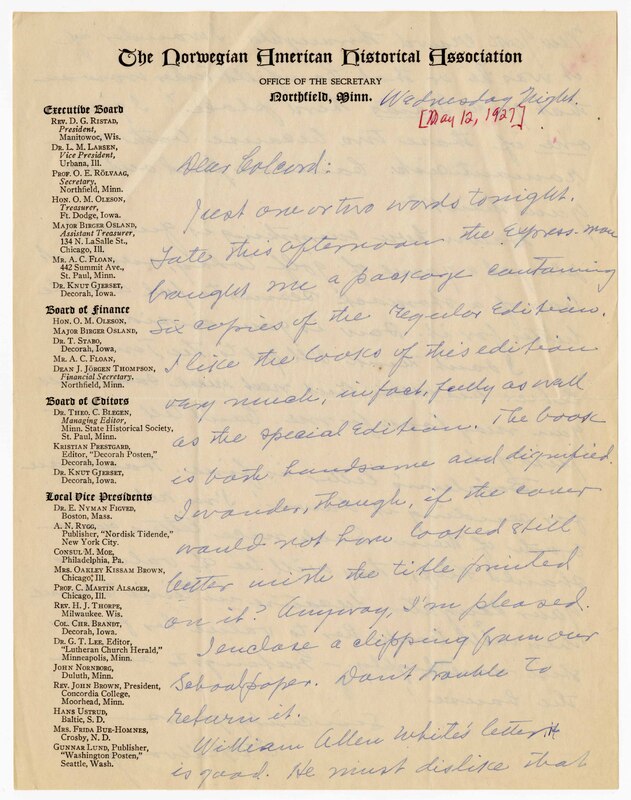 The Norwegian American Historical Association
OFFICE OF THE SECRETARY
Northfield, Minn.
Wednesday Night.
[May 12, 1927]
Executive Board
REV. D. G. RISTAD,
President,
Manitowoc, Wis.
DR. L. M. LARSEN,
Vice President,
Urbana, Ill.
PROF. O. E. RÖLVAAG,
Secretary,
Northfield, Minn.
HON. O. M. OLESON,
Treasurer,
Ft. Dodge, Iowa.
MAJOR BIRGER OSLAND,
Assistant Treasurer,
134 N. LaSalle St.,
Chicago, Ill.
MR. A. C. FLOAN,
442 Summit Ave.,
St. Paul, Minn.
DR. KNUT GJERSET,
Decorah, Iowa.
Board of Finance
HON. O. M. OLESON,
MAJOR BIRGER OSLAND,
DR. T. STABO,
Decorah, Iowa.
MR. A. C. FLOAN,
DEAN J. JÖRGEN THOMPSON,
Financial Secretary,
Northfield, Minn.
Board of Editors
DR. THEO. C. BLEGEN,
Managing Editor,
Minn. State Historical Society,
St. Paul, Minn.
KRISTIAN PRESTGARD,
Editor, "Decorah Posten,"
Decorah, Iowa.
DR. KNUT GJERSET,
Decorah, Iowa.
Local Vice Presidents
DR. E. NYMAN FIGVED,
Boston, Mass.
A. N. RYGG,
Publisher, "Nordisk Tidende,"
New York City.
CONSUL M. MOE,
Philadelphia, Pa.
MRS. OAKLEY KISSAM BROWN,
Chicago, Ill.
PROF. C. MARTIN ALSAGER,
Chicago, Ill.
REV. H. J. THORPE,
Milwaukee. Wis.
COL. CHR. BRANDT,
Decorah, Iowa.
DR. G. T. LEE, Editor,
"Lutheran Church Herald,"
Minneapolis, Minn.
JOHN NORNBORG,
Duluth, Minn.
REV. JOHN BROWN, President,
Concordia College,
Moorhead, Minn.
HANS USTRUD,
Baltic, S. D.
MRS. FRIDA BUE-HOMNES,
Crosby, N. D.
GUNNAR LUND, Publisher,
"Washington Posten,"
Seattle, Wash.
Dear Colcord:
Just one or two words tonight.
Late this afternoon the Express-man
brought me a package containing
six copies of the regular Edition.
I like the looks of this edition
very much, in fact, fully as well
as the special Edition. The book
is both handsome and dignified.
I wonder, though, if the cover
would not have looked still
better with the title printed
on it? Anyway, I'm pleased.
I enclose a clipping from our
Schoolpaper. Don't trouble to
return it.
William Allen White's letter
is good. He must dislike that